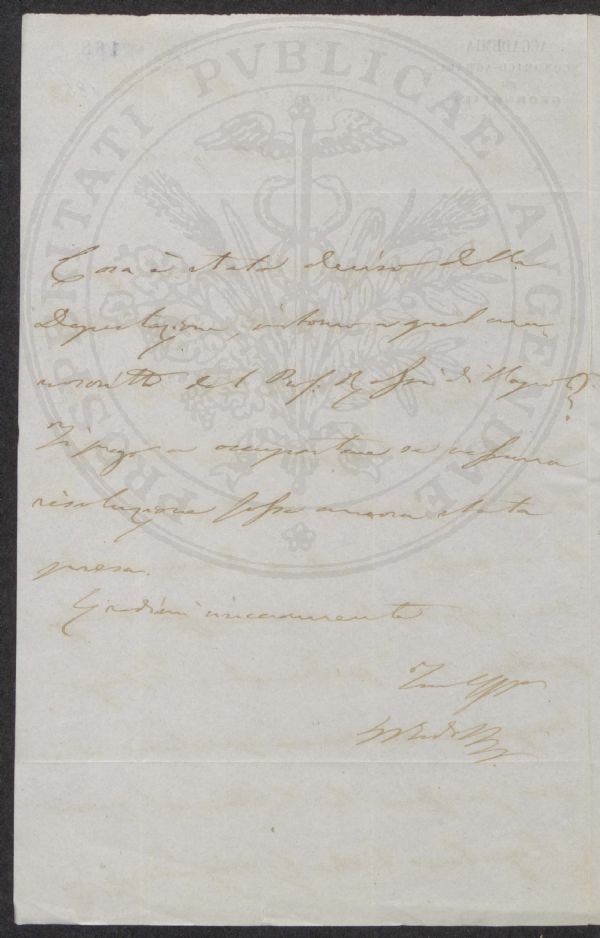 PROSPERITATI PVBLICAE AVGENDAE
Cosa è stato deciso dalla
Deputazione, intorno a quel ma-
noscritto del Prof.
Ti prego a occupartene se nessuna
risoluzione fosse ancora stata
presa.
Credimi sinceramente